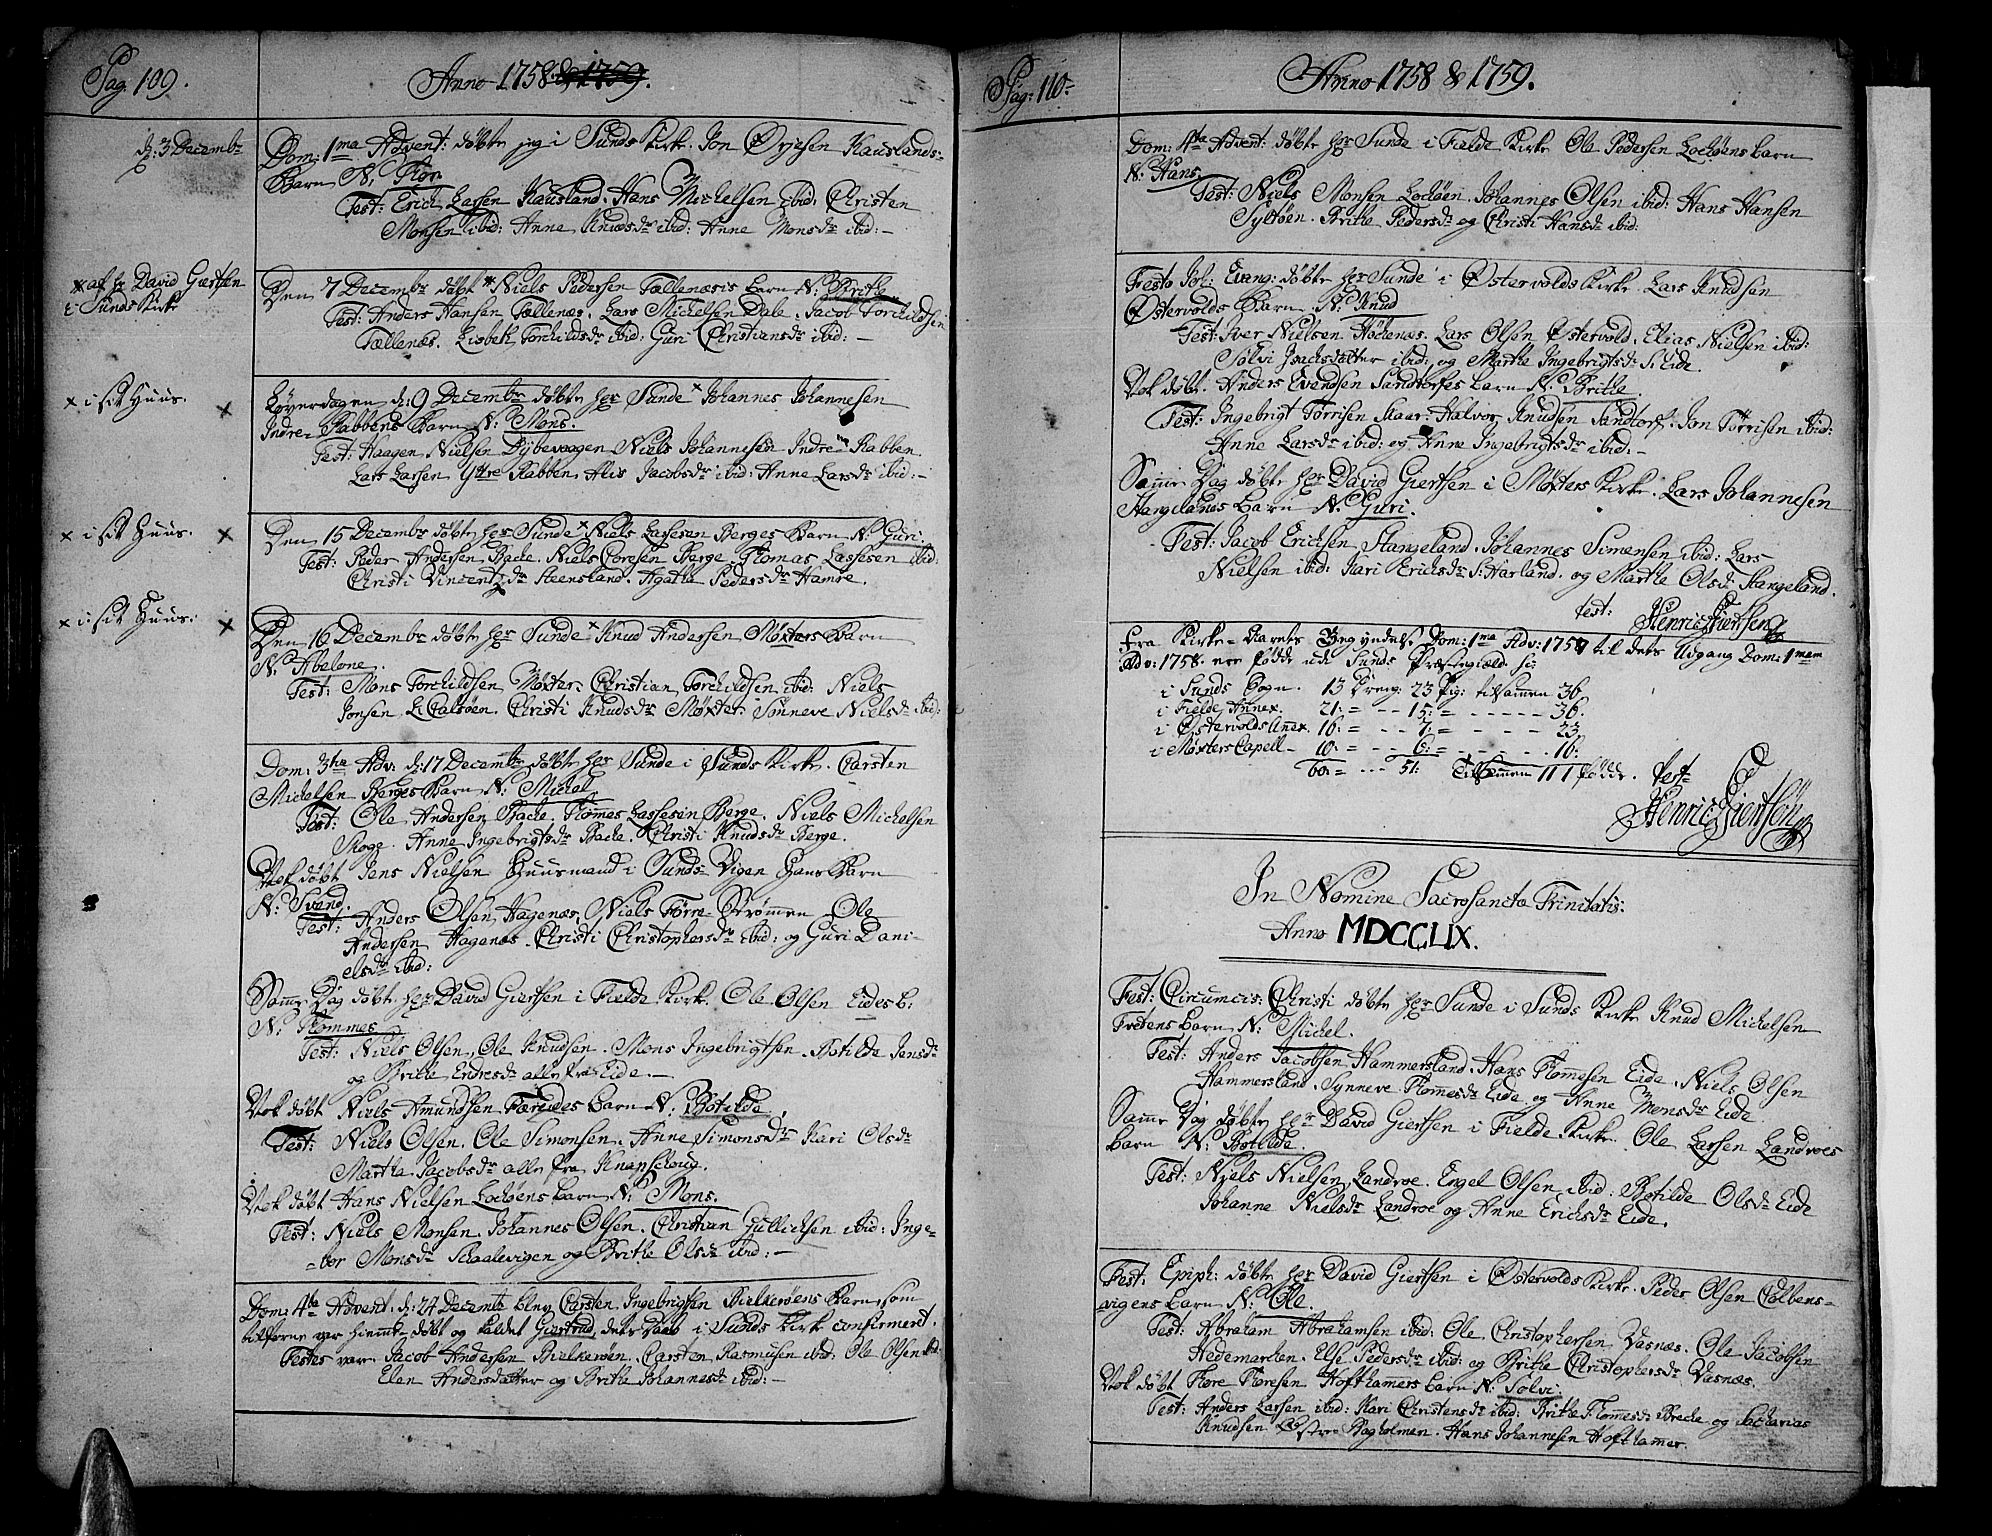 Pag 109.
Anno 1758 & 1759.
d: 3 Decembr
Dom: 1ma Advent: döbte jeg i Sunds Kirke Jon Örjesen Kauslands-
Barn N. Thor.
Test: Erich Larsen Kausland. Hans Michelsen ibid: Christen
Monsen ibid: Anne Knudsdr ibid: Anne Monsdr ibid:-
x af hr David Giertsen
i Sunds Kirke
Den 7 Decembr döbt x Niels Pedersen Tællenæsis barn N. Brithe
Test: Anders Hansen Tællenæs. Lars Michelsen Dale. Jacob Torchildsen
Tællenæs. Lisbeth Torchildsdr ibid: Guri Christiansdr ibid:-
x i sit Huus. x
Löverdagen d: 9 Decembr döbte hr Sunde x Johannes Johannesen
Indre-Rabbens Barn N: Mons.
Test: Haagen Nielsen Dybevaagen Niels Johannesen Indre-Rabben
Lars Larsen Yttre Rabben. Alis Jacobsdr ibid: Anne Larsdr ibid:-
x i sit Huus. x
Den 15 Decembr döbte hr Sunde x Niels Lassesen Berges Barn N. Guri.
Test: Peder Andersen Backe. Niels Toresen Berge. Thomas Lassesen ibid:
Christi Vincentzdr Steensland. Agatha Pedersdr Hamre.
x i sit Huus. x
Den 16 Decembr döbte hr Sunde x Knud Andersen Möxters Barn
N. Abelone.
Test: Mons Torchildsen Möxter. Christian Torchildsen ibid: Niels
Jonsen L: Calsöen. Christi Knudsdr Möxter. Sönneve Nielsdr ibid:
Dom: 3tia Adv: d: 17 Decembr döbte hr Sunde i Sunds Kirke. Carsten
Michelsen Berges Barn N: Michel.
Test: Ole Andersen Backe. Thomes Lassesen Berge. Niels Michelsen
Skoge. Anne Ingebrigtsdr Backe. Christi Knudsdr Berge.
Ock döbt Jens Nielsen Huusmand i Sunds-Vigen Hans Barn
N. Svend.
Test: Anders Olsen Hagenæs, Niels Törre-Strömmen Ole
Andersen Hagenæs. Christi Christophersdr ibid: og Guri Dani-
elsdr ibid:
Samme Dag döbt hr David Giertsen i Fielde Kirke. Ole Olsen Eides b.
N. Thommes
Test: Niels Olsen, Ole Knudsen. Mons Ingebrigtsen. Botilde Jensdr
og Brithe Endresdr alle fra Eide.-
Ock döbt Niels Amundsen Færeides barn N. Botilde,
Test: Niels Olsen, Ole Simonsen, Anne Simonsdr Kari Olsdr
Martha Jacobsdr alle fra Knapschoug.
Ock döbt Hans Nielsen Lochöens barn N. Mons.
Test: Niels Monsen, Johannes Olsen. Christian Gullichsen ibid: Inge-
-bor Monsdr Skaalevigen og Brithe Olsdr ibid:-
Dom: 4ta Advent: d: 24 Decembr blev Carsten Ingebrigtsen Bielkeröens Barn, som
tilforne var hiemme-döbt og kaldet Giertrud, dets Daab i Sunds kirke confirmert.
Testes var Jacob Andersen Bielkeröen. Carsten Rasmusen ibid. Ole Olsen ibid
Elen Andersdatter og Brithe Johannesdr ibid:-
Pag: 110-
Anno 1758 & 1759.
Dom: 4ta Advent: döbte hr Sunde i Fielde Kirke Ole Pedersen Lochöens barn
N: Hans.
Test: Niels Monsen Lochöen. Johannes Olsen ibid: Hans Hansen
Syltöen. Brithe Pedersdr og Christi Hansdr ibid:
Festo Joh: Evang: döbte hr Sunde i Östervolds Kirke Lars Knudsen
Östervolds Barn N: Knud
Test: Iver Nielsen Höckenæs. Lars Olsen Östervold. Elias Nielsen ibid:
Sölvi Isachsdatter ibid: og Marthe Ingebrigtsdr S. Eide
Ock döbt. Anders Evendsen Sandtorfs barn N. Brithe
Test: Ingebrigt Torrisen Skaar. Halvor Knudsen Sandtorf. Jon Torrisen ibid:
Anne Larsdr ibid: og Anne Ingebrigtsdr ibid:-
Samme Dag döbte hr David Giertsen i Möxters Kirke. Lars Johannesen
Stangelands barn N. Guri.
Test: Jacob Erichsen Stangeland. Johannes Simensen ibid: Lars
Nielsen ibid: Kari Erichsdr S: Harland. og Marthe Olsdr Stangeland.
test: Henric Giertsen
Fra Kirke-Aarets Begyndelse Dom: 1ma Adv: 1757 til dets Udgang Dom: 1mam
Adv: 1758. ere födde udi Sunds Præstegield s:
i Sunds Sogn. 13 Dreng: 23 Pig: tilsammen 36.
i Fielde Annex. 21: = - - 15: = - - - - - 36.
i Östervolds Annex. 16: = - - 7: = - - - - - 23.
i Möxters Capell- 10: = - - 6: = - - - - - 16.
60: = - - - 51: Tilsammen 111 födde. test
Henric Giertsön
In Nomine Sacrosanctæ Trinitatis:
Anno MDCCLIX.
Fest: Circumcis: Christi döbte hr Sunde i Sunds Kirke Knud Michelsen
Tvetens barn N: Michel.
Test: Anders Jacobsen Hammersland. Hans Thomesen Eide. Niels Olsen
Hammersland. Synneve Thomesdr Eide og Anne Monsdr Eide
Samme Dag döbte hr David Giertsen i Fielde Kirke Ole Larsen Landroes
barn N: Botilde.
Test: Niels Nielsen Landroe. Engel Olsen ibid: Botilde Olsdr Eide
Johanne Nielsdr Landroe og Anne Erichsdr Eide.
Fest: Epiph: döbte hr David Giertsen i Östervolds Kirke. Peder Olsen Colbens-
vigens barn N: Ole.
Test: Abraham Abrahamsen ibid: Ole Christophersen Vasnæs. Ole Jacobsen
Hedemarken. Else Pedersdr ibid: og Brithe Christophersdr Vasnæs.
Ock döbt Thore Thoresen Hofthamers barn N: Sölvi.
Test: Anders Larsen ibid: Kari Christensdr ibid: Brithe Thomesdr Breche og Sacharias
Knudsen Östre Bagholmen. Hans Johannesen Hofthamer